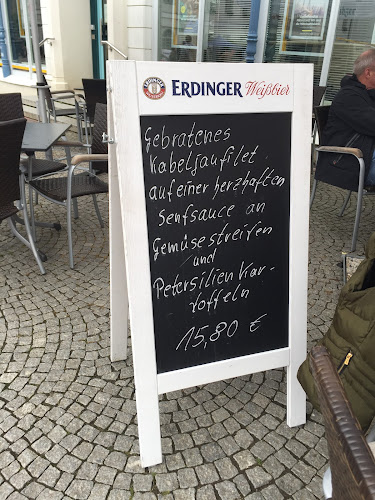 ERDINGER Weißbier
Gebratenes
Kabeljaufilet
auf einer herzhaften
Senfsauce an
Gemüsestreifen
und
Petersilien Kar-
toffeln
15,80 €